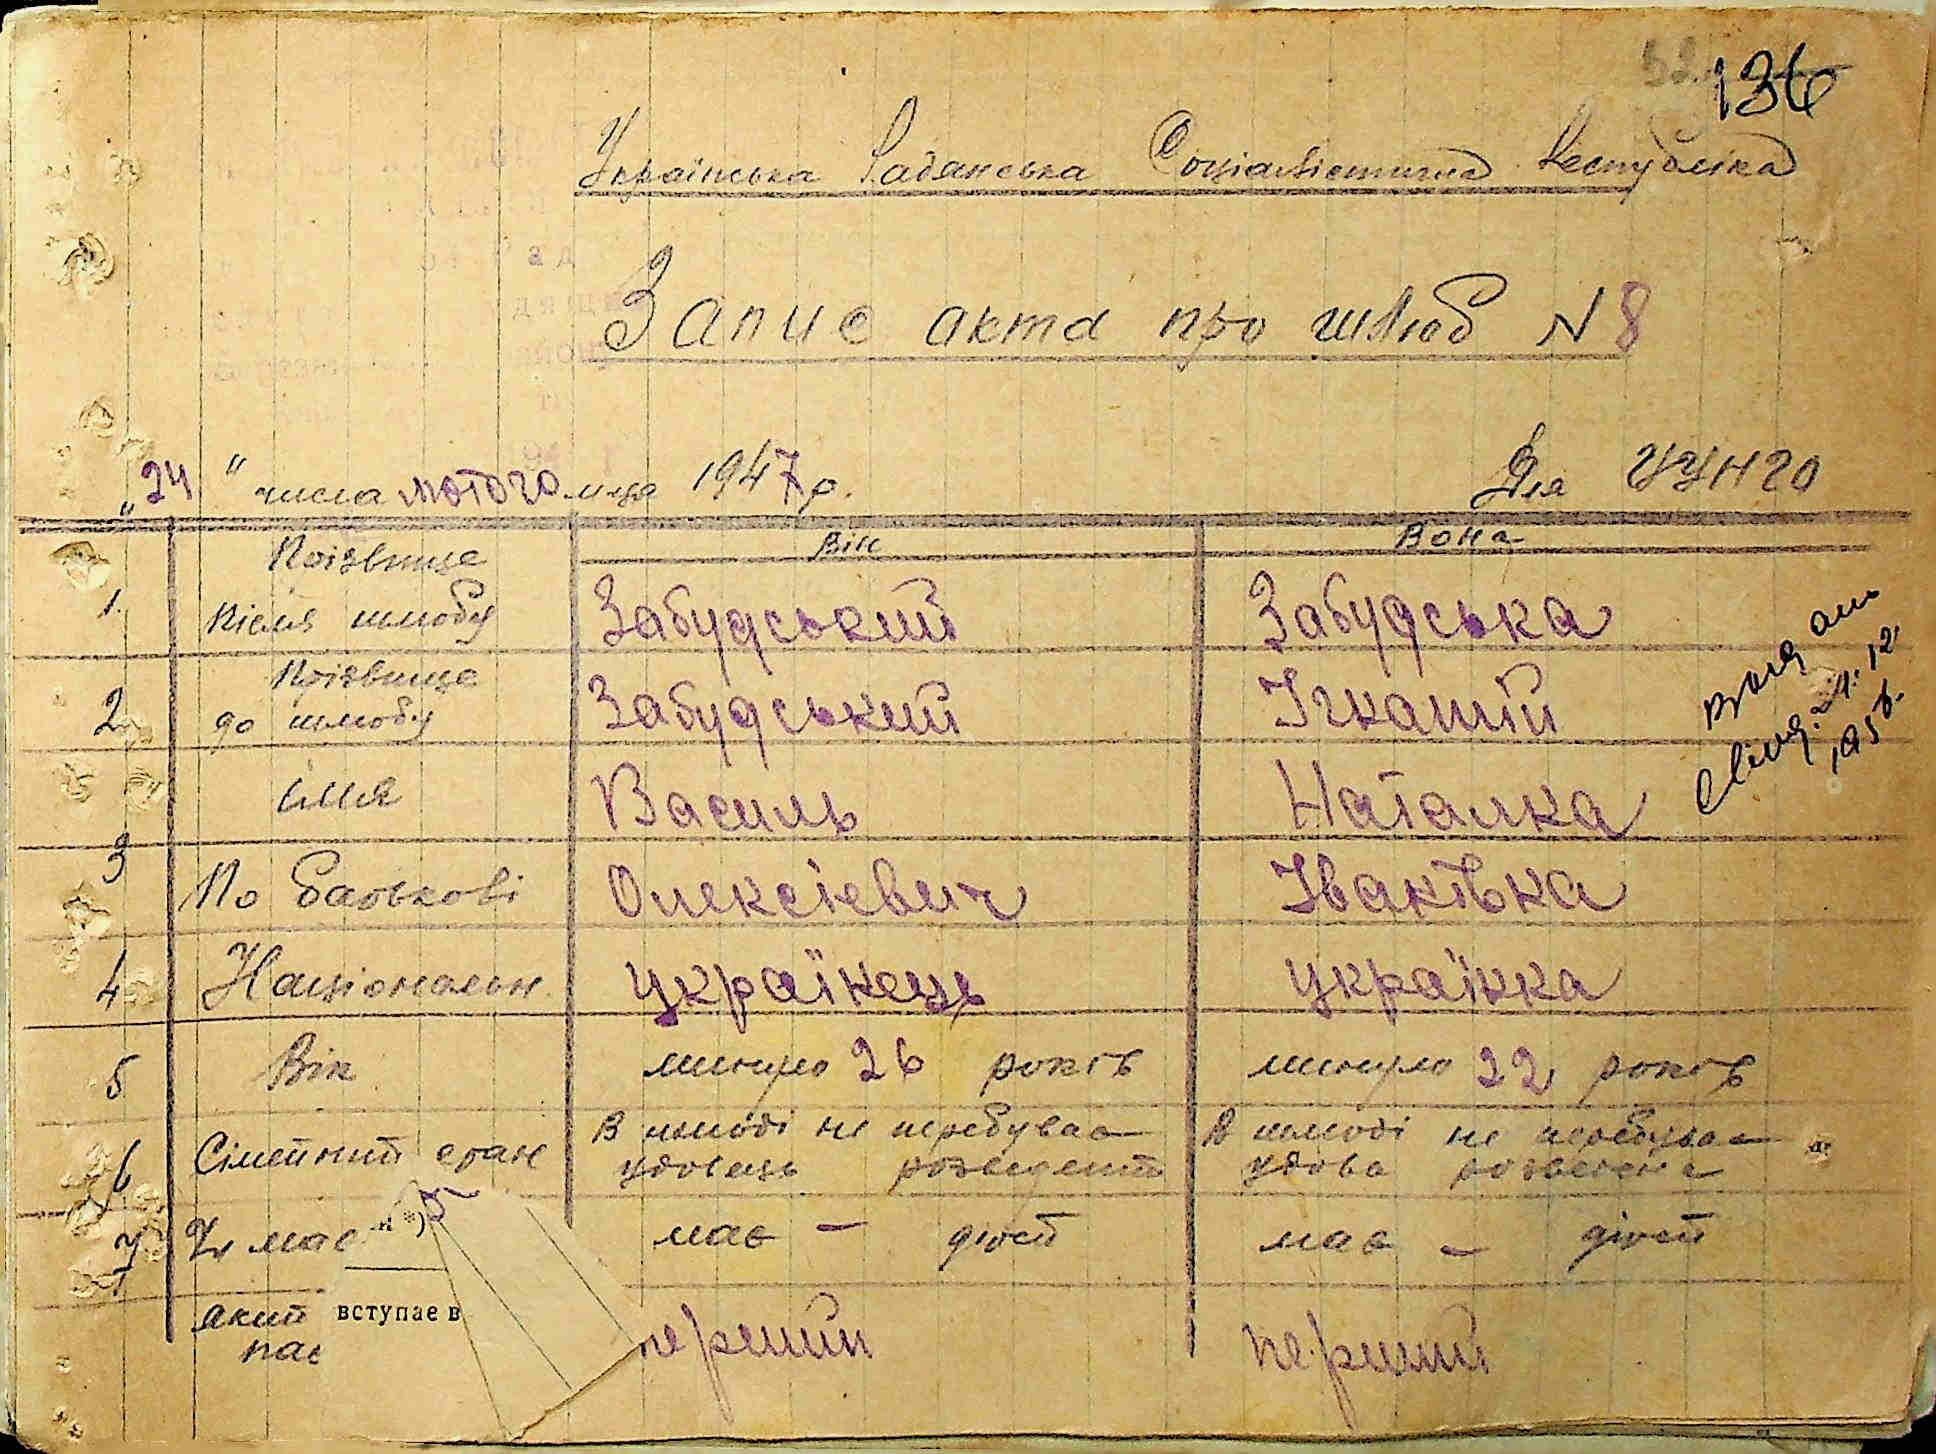 136
Українська Радянська Соціалістична Республіка
Запис акта про шлюб N 8
"24" числа лютого м-ця 1947 р. Для ЦУНГО
Він Вона
1. Прізвище після шлюбу Забудський Забудська
2 Прізвище до шлюбу Забудський Ігнатій
імя Василь Наталка
3 По батькові Олексієвич Іванівна
4 Національн. українець українка
5 Вік минуло 26 років минуло 22 років
6 Сімейний стан В шлюбі не перебував В шлюбі не перебувал
удовець розведений удова розведена
7 Чи має має – дітей має – дітей
н *) 5
який вступає в перший перший
21.12.
195